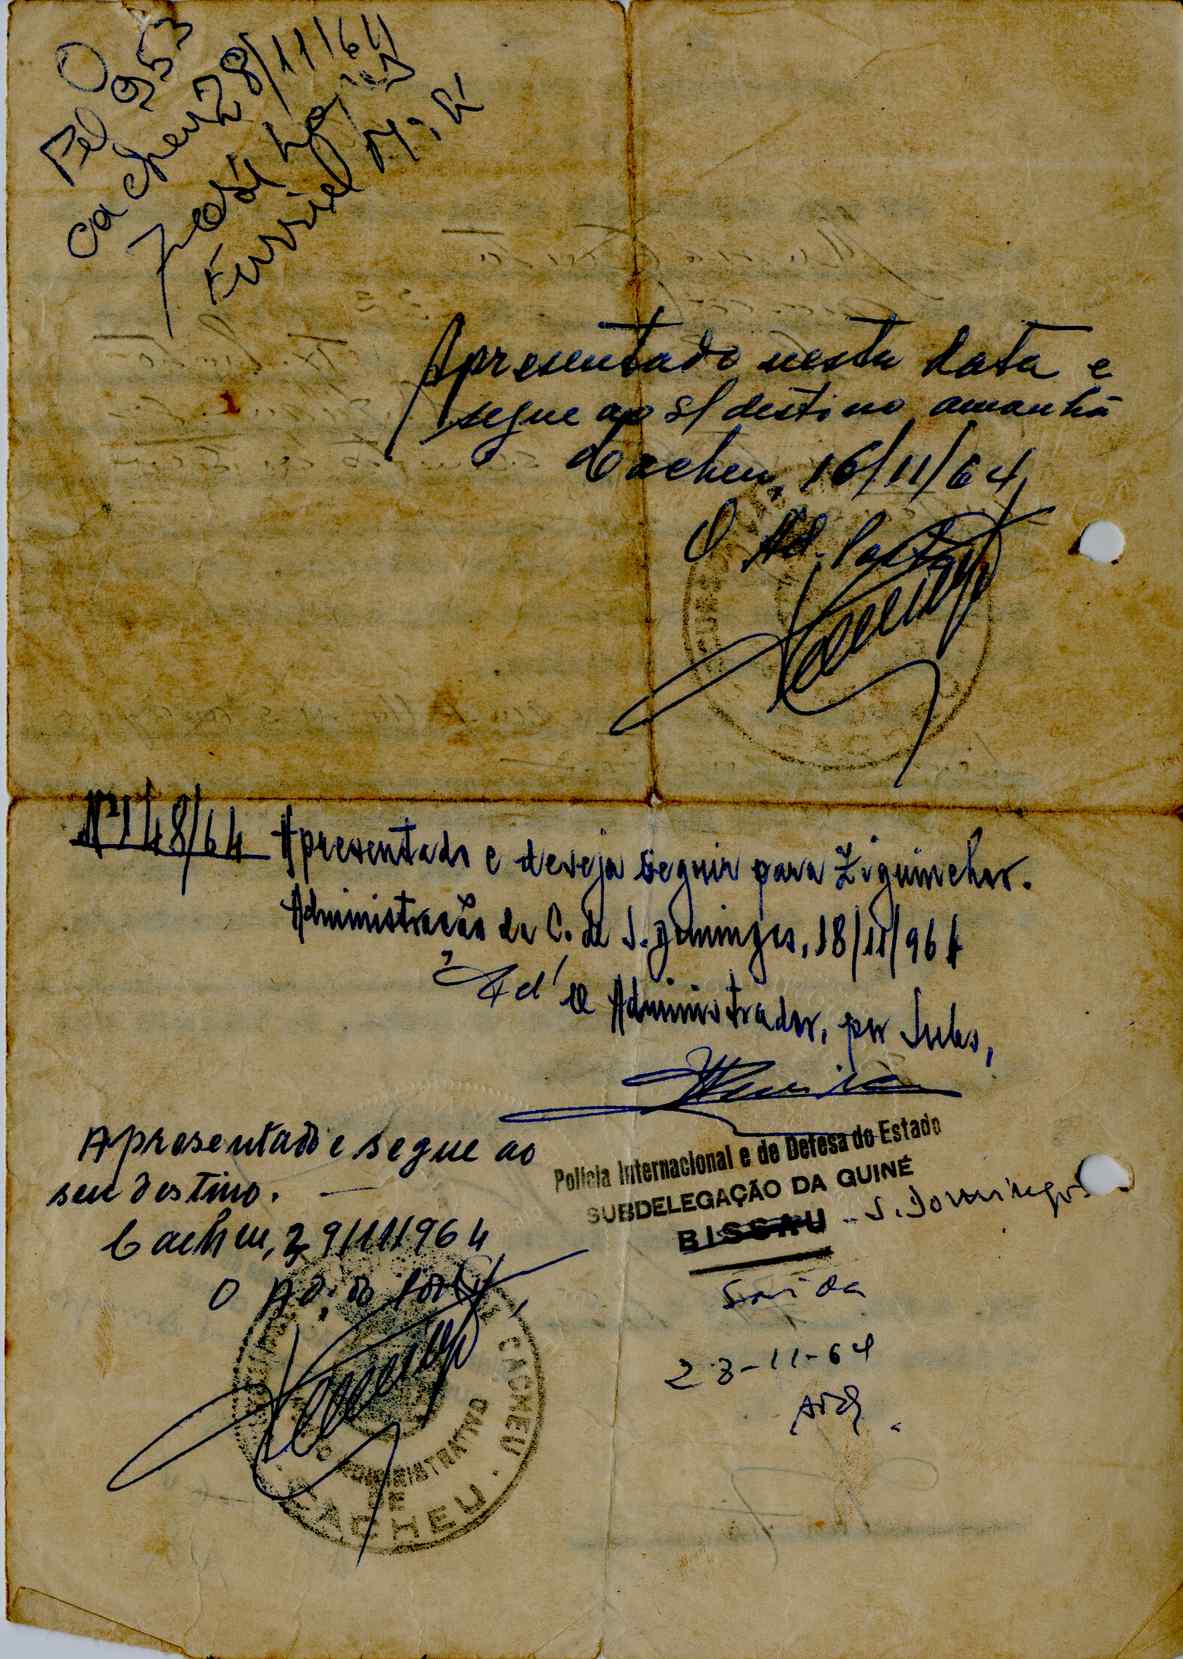 Pel 953
Cacheu 28/11/64
José
Furriel Mil
Apresentado nesta data e
segue ao s/ destino amanhã
Cacheu, 16/11/64
O Ad. Posto
Nº 148/64 Apresentado e deseja seguir para Ziguinchor.
Administração de C. de S. Domingos, 18/11/964
O Administrador, por Subs,
Apresentado e segue ao
seu destino.
Cacheu, 29/11/1964
O Ad. do Posto,
CACHEU
ADMINISTRATIVO
DE
CACHEU
Policia Internacional e de Defesa do Estado
SUBDELEGAÇÃO DA GUINÉ
BISSAU - S. Domingos
Saida
23-11-64